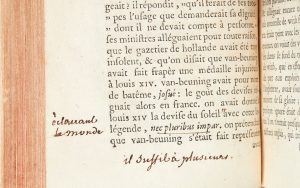 geait : il répondit, „ qu'il ferait de ses tro
„ pes l'usage que demanderait sa dignit
„ dont il ne devait compte à person
ses ministres alléguaient pour toute raison
que le gazetier de hollande avait été tro
insolent, & qu'on disait que van-beuning
avait fait fraper une médaille injurieuse
à louis xiv. van-beuning avait pour nom
de batême, josué : le gout des devises
gnait alors en france. on avait donné
à louis xiv la devise du soleil avec cette
légende, nec pluribus impar. on prétendit
que van-beuning s'était fait représenter
éclairant
le monde
il suffit à plusieurs.